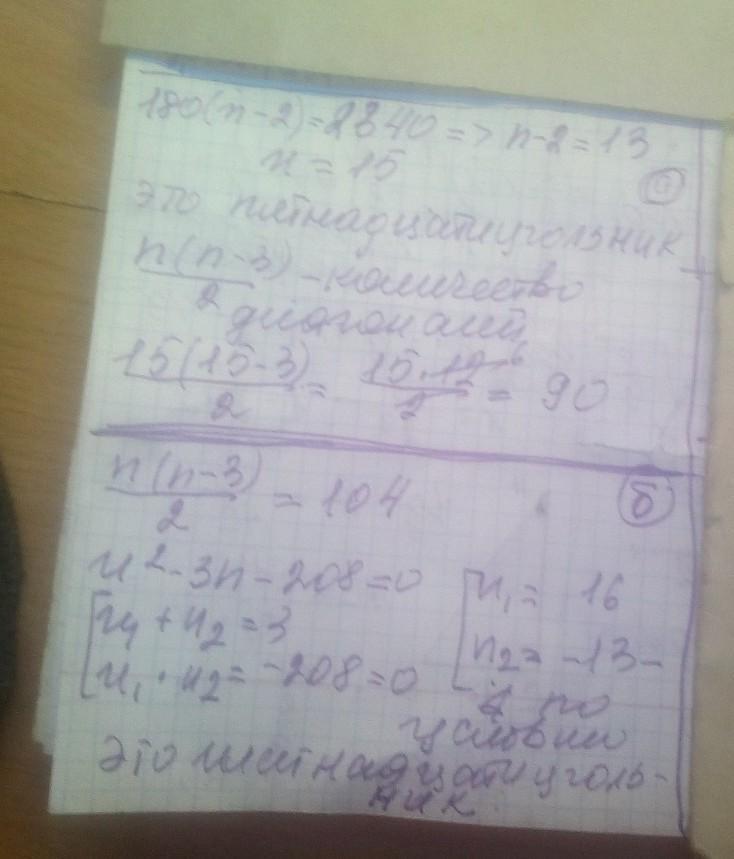 180(n-2)=2340=>n-2=13
n=15
а
это пятнадцатиугольник
n(n-3)/2 -количество
диагоналей
15(15-3)/2 = 15·12/2 = 90
6
n(n-3)/2 = 104
б
n²-3n-208=0
n₁+n₂=3
n₁·n₂=-208=0
n₁= 16
n₂= -13-
по
условию
это шестнадцатиуголь-
ник